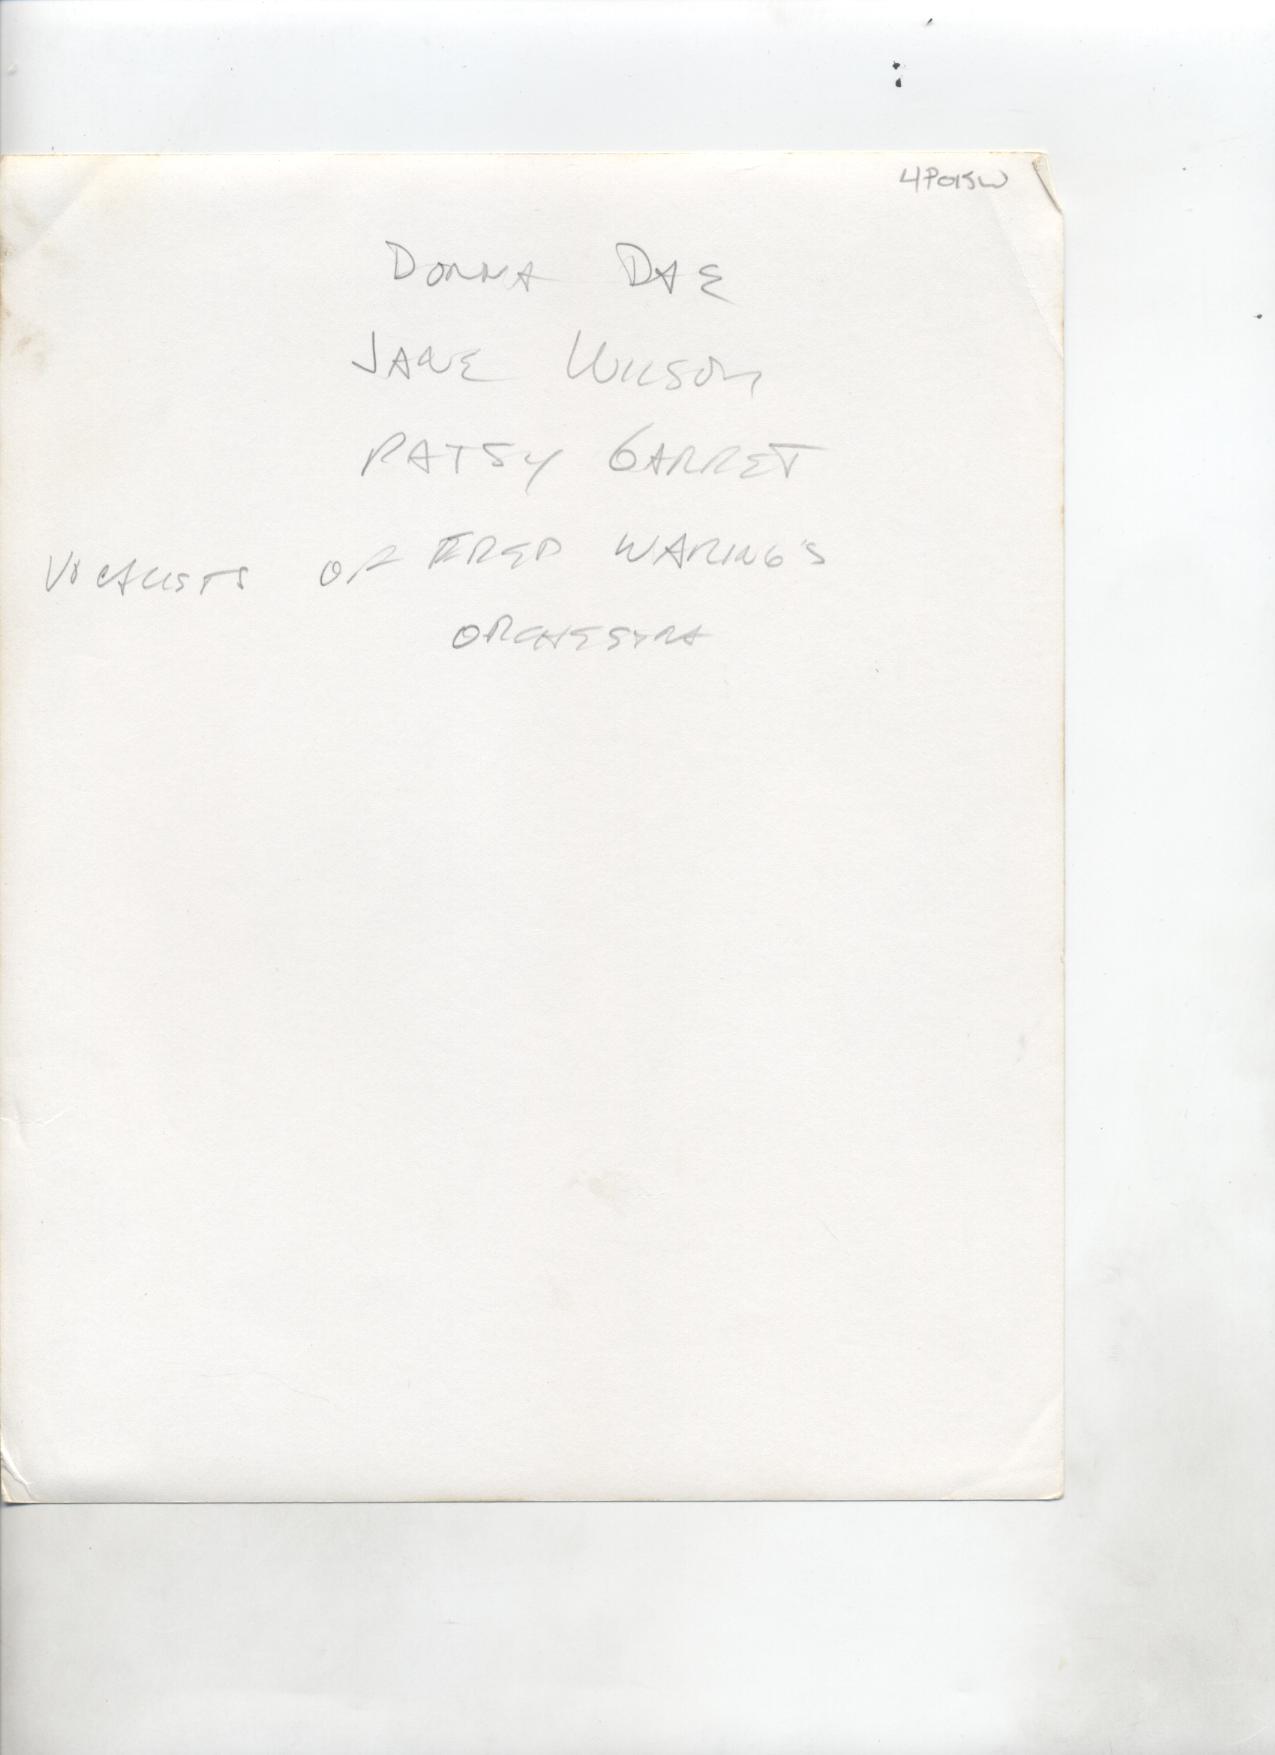 4P015W
DONNA DAE
JANE WILSON
PATSY GARRET
VOCALISTS OF FRED WARING'S
ORCHESTRA